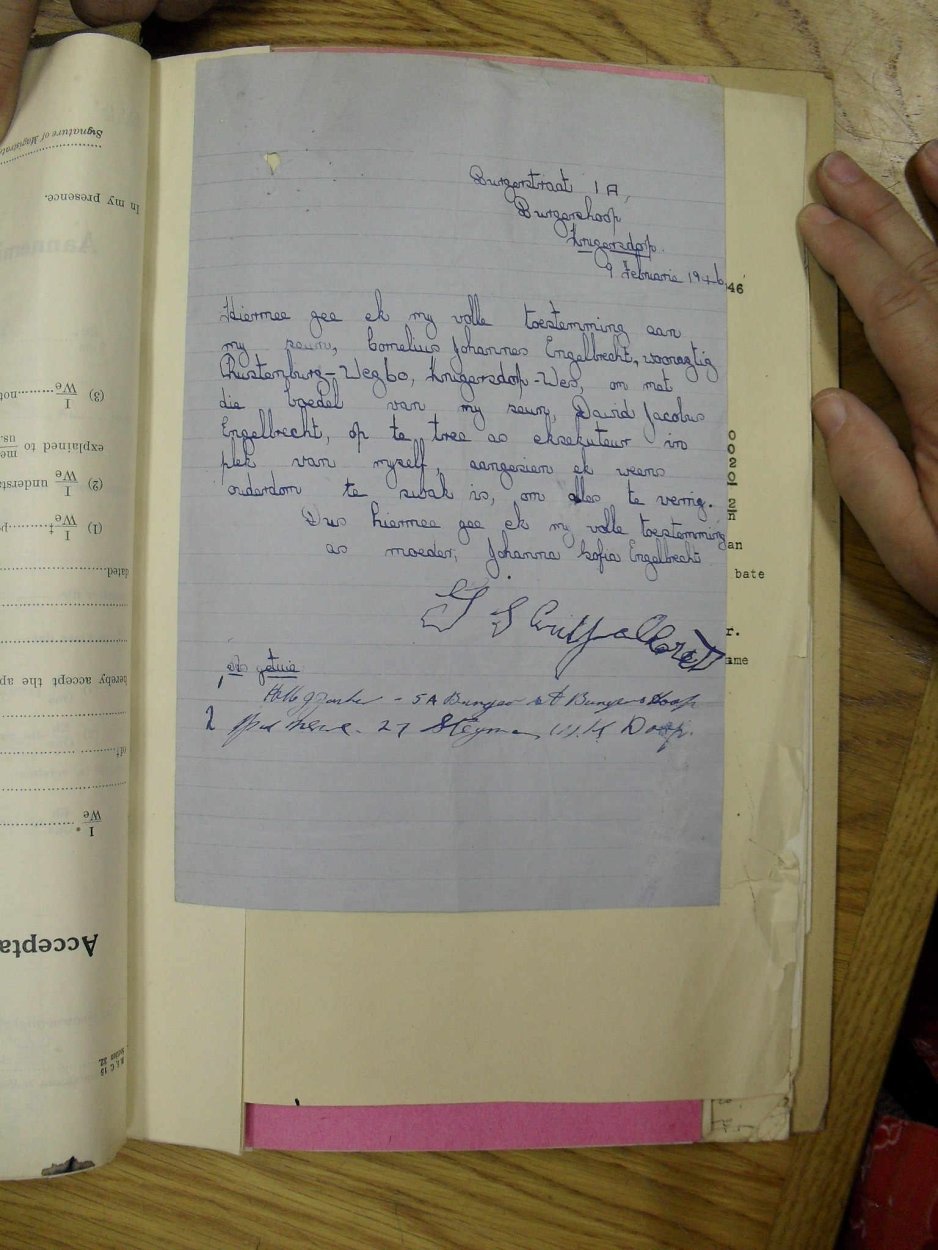 Burgerstraat 1A,
Burgershoop
Krugersdorp.
9 Februarie 1946
Hiermee gee ek my volle toestemming aan
my seun, Cornelius Johannes Engelbrecht, woonagtig
Rustenburg-Wegbo, Krugersdorp-Wes, om met
die boedel van my seun, David Jacobus
Engelbrecht, op te tree as eksekuteur in
plek van myself, aangesien ek weens
ouderdom te swak is, om alles te verrig.
Dus hiermee gee ek my volle toestemming
as moeder, Johanna Sofia Engelbrecht
As getuie
1
- 5A Burger St Burgershoop
2 27 Steyn Hoop.
46
0
0
2
0
2
n
an
bate
r.
ame
Signature of Magistrate
In my presence.
(3) I We not
explained to me us.
(2) I We understa
(1) I We p
dated
hereby accept the ap
of
I We
Accepta